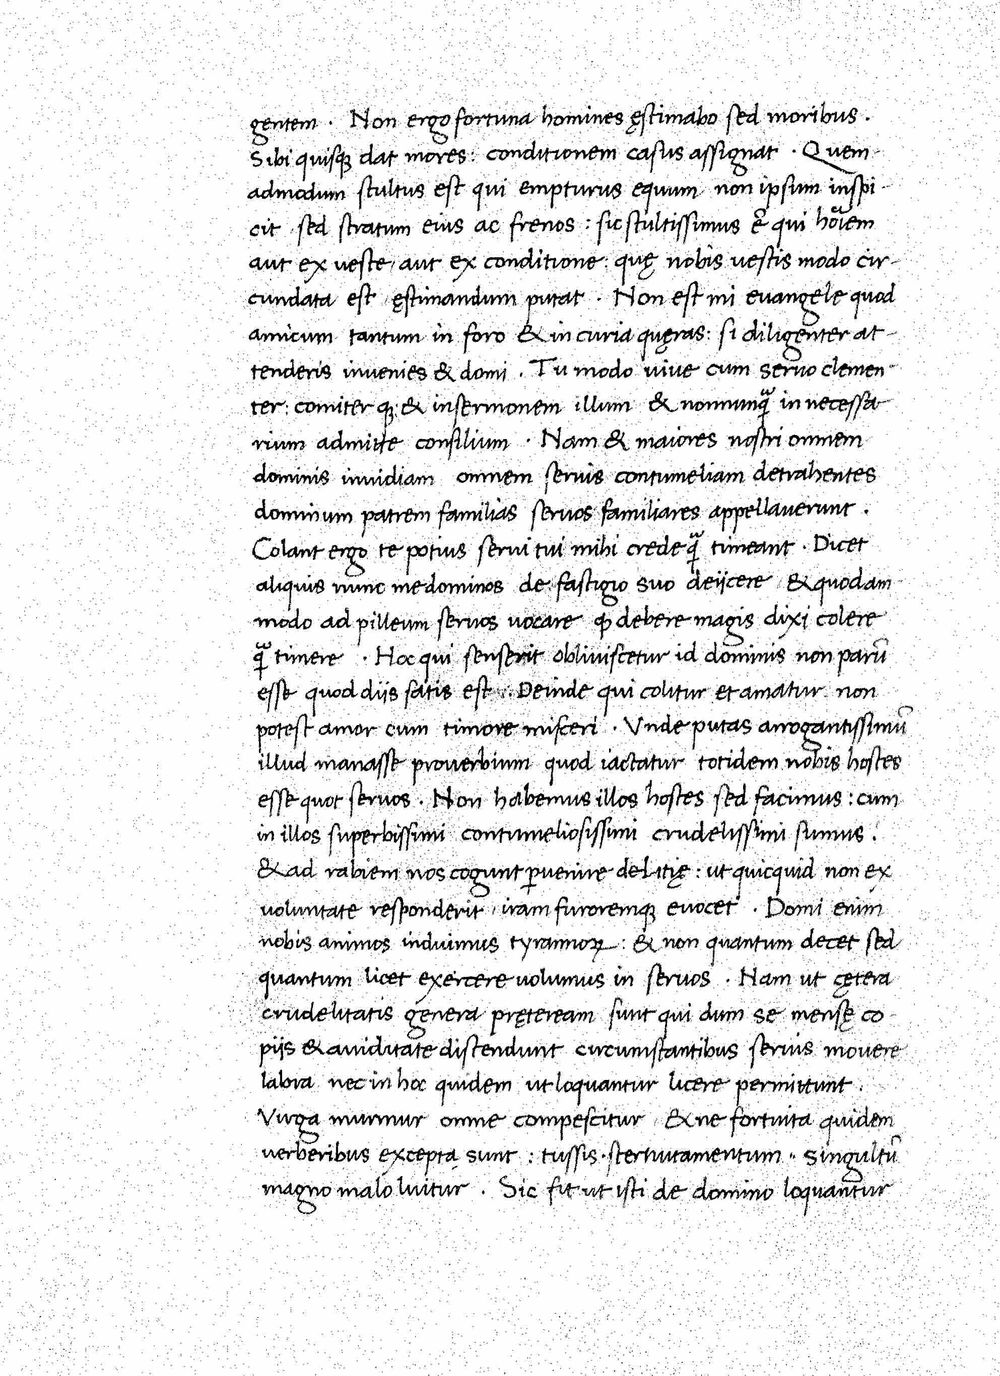 gentem · Non ergo fortuna homines ęstimabo sed moribus .
Sibi quisqꝫ dat mores : conditionem casus assignat · Quem-
admodum stultus est qui empturus equum non ipsum inspi-
cit sed stratum eius ac frenos : sic stultissimus ē qui hoīem
aut ex ueste, aut ex conditione : quę nobis uestis modo cir-
cundata est ęstimandum putat · Non est mi euangele quod
amicum tantum in foro & in curia quęras : si diligenter at-
tenderis inuenies & domi . Tu modo uiue cum seruo clemen-
ter : comiter qꝫ : & in sermonem illum & nonnunq̃ in necessa-
rium admitte consilium · Nam & maiores nostri omnem
dominis inuidiam omnem seruis contumeliam detrahentes
dominum patrem familias seruos familiares appellauerunt .
Colant ergo te potius serui tui mihi crede q̃ timeant · Dicet
aliquis nunc me dominos de fastigio suo deijcere & quodam-
modo ad pilleum seruos uocare qͦ debere magis dixi colere
q̃ timere · Hoc qui senserit obliuiscetur id dominis non parū
esse quod diis satis est . Deinde qui colitur et amatur non
potest amor cum timore misceri · Vnde putas arrogantissimū
illud manasse prouerbium quod iactatur totidem nobis hostes
esse quot seruos . Non habemus illos hostes sed facimus : cum
in illos superbissimi contumeliosissimi crudelissimi sumus .
& ad rabiem nos cogunt ꝑuenire delitię : ut quicquid non ex
uoluntate responderit, iram furoremqꝫ euocet · Domi enim
nobis animos induimus tyrannoꝝ : & non quantum decet sed
quantum licet exercere uolumus in seruos · Nam ut cętera
crudelitatis genera pręteream sunt qui dum se mensę co-
pijs & auiditate distendunt circumstantibus seruis mouere
labra nec in hoc quidem ut loquantur licere permittunt .
Virga murmur omne compescitur & ne fortuita quidem
uerberibus excepta sunt : tussis · sternutamentum · singultū
magno malo luitur . Sic fit ut isti de domino loquantur